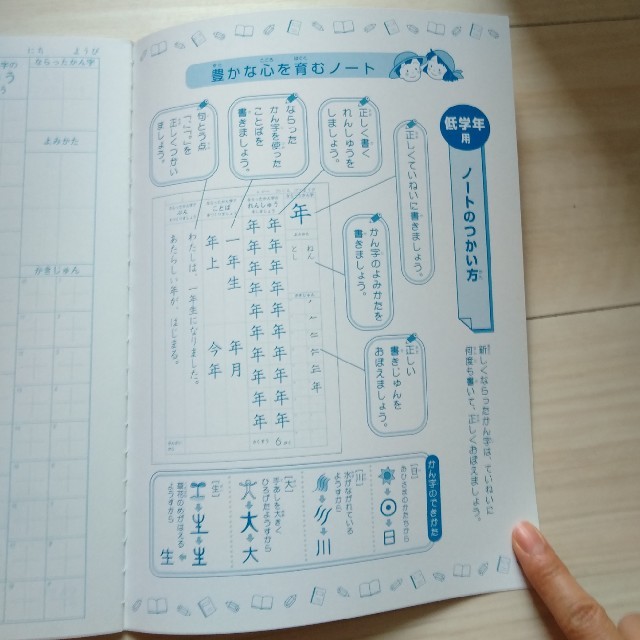 豊かな心を育むノート
低学年用
ノートのつかい方
新しくならったかん字は、ていねいに
何度も書いて、正しくおぼえましょう。
正しくていねいに書きましょう。
正しく書く
れんしゅうを
しましょう。
ならった
かん字を使った
ことばを
書きましょう。
句とう点
「、」「。」を
正しくつかい
ましょう。
かん字のよみかたを
書きましょう。
正しい
書きじゅんを
おぼえましょう。
年
ねん
とし
年年年年年年年年
年年年年年年年年
一年生
年月
年上
今年
わたしは、一年生になりました。
あたらしい年が、はじまる。
かん字のできかた
【日】
おひさまのかたちから
日
【川】
水がながれている
ようすから
川
【大】
手あしを大きく
ひろげたようすから
大
大
【生】
草花のめが生える
ようすから
生
生
にち
ようび
ならったかん字
よみかた
かきじゅん